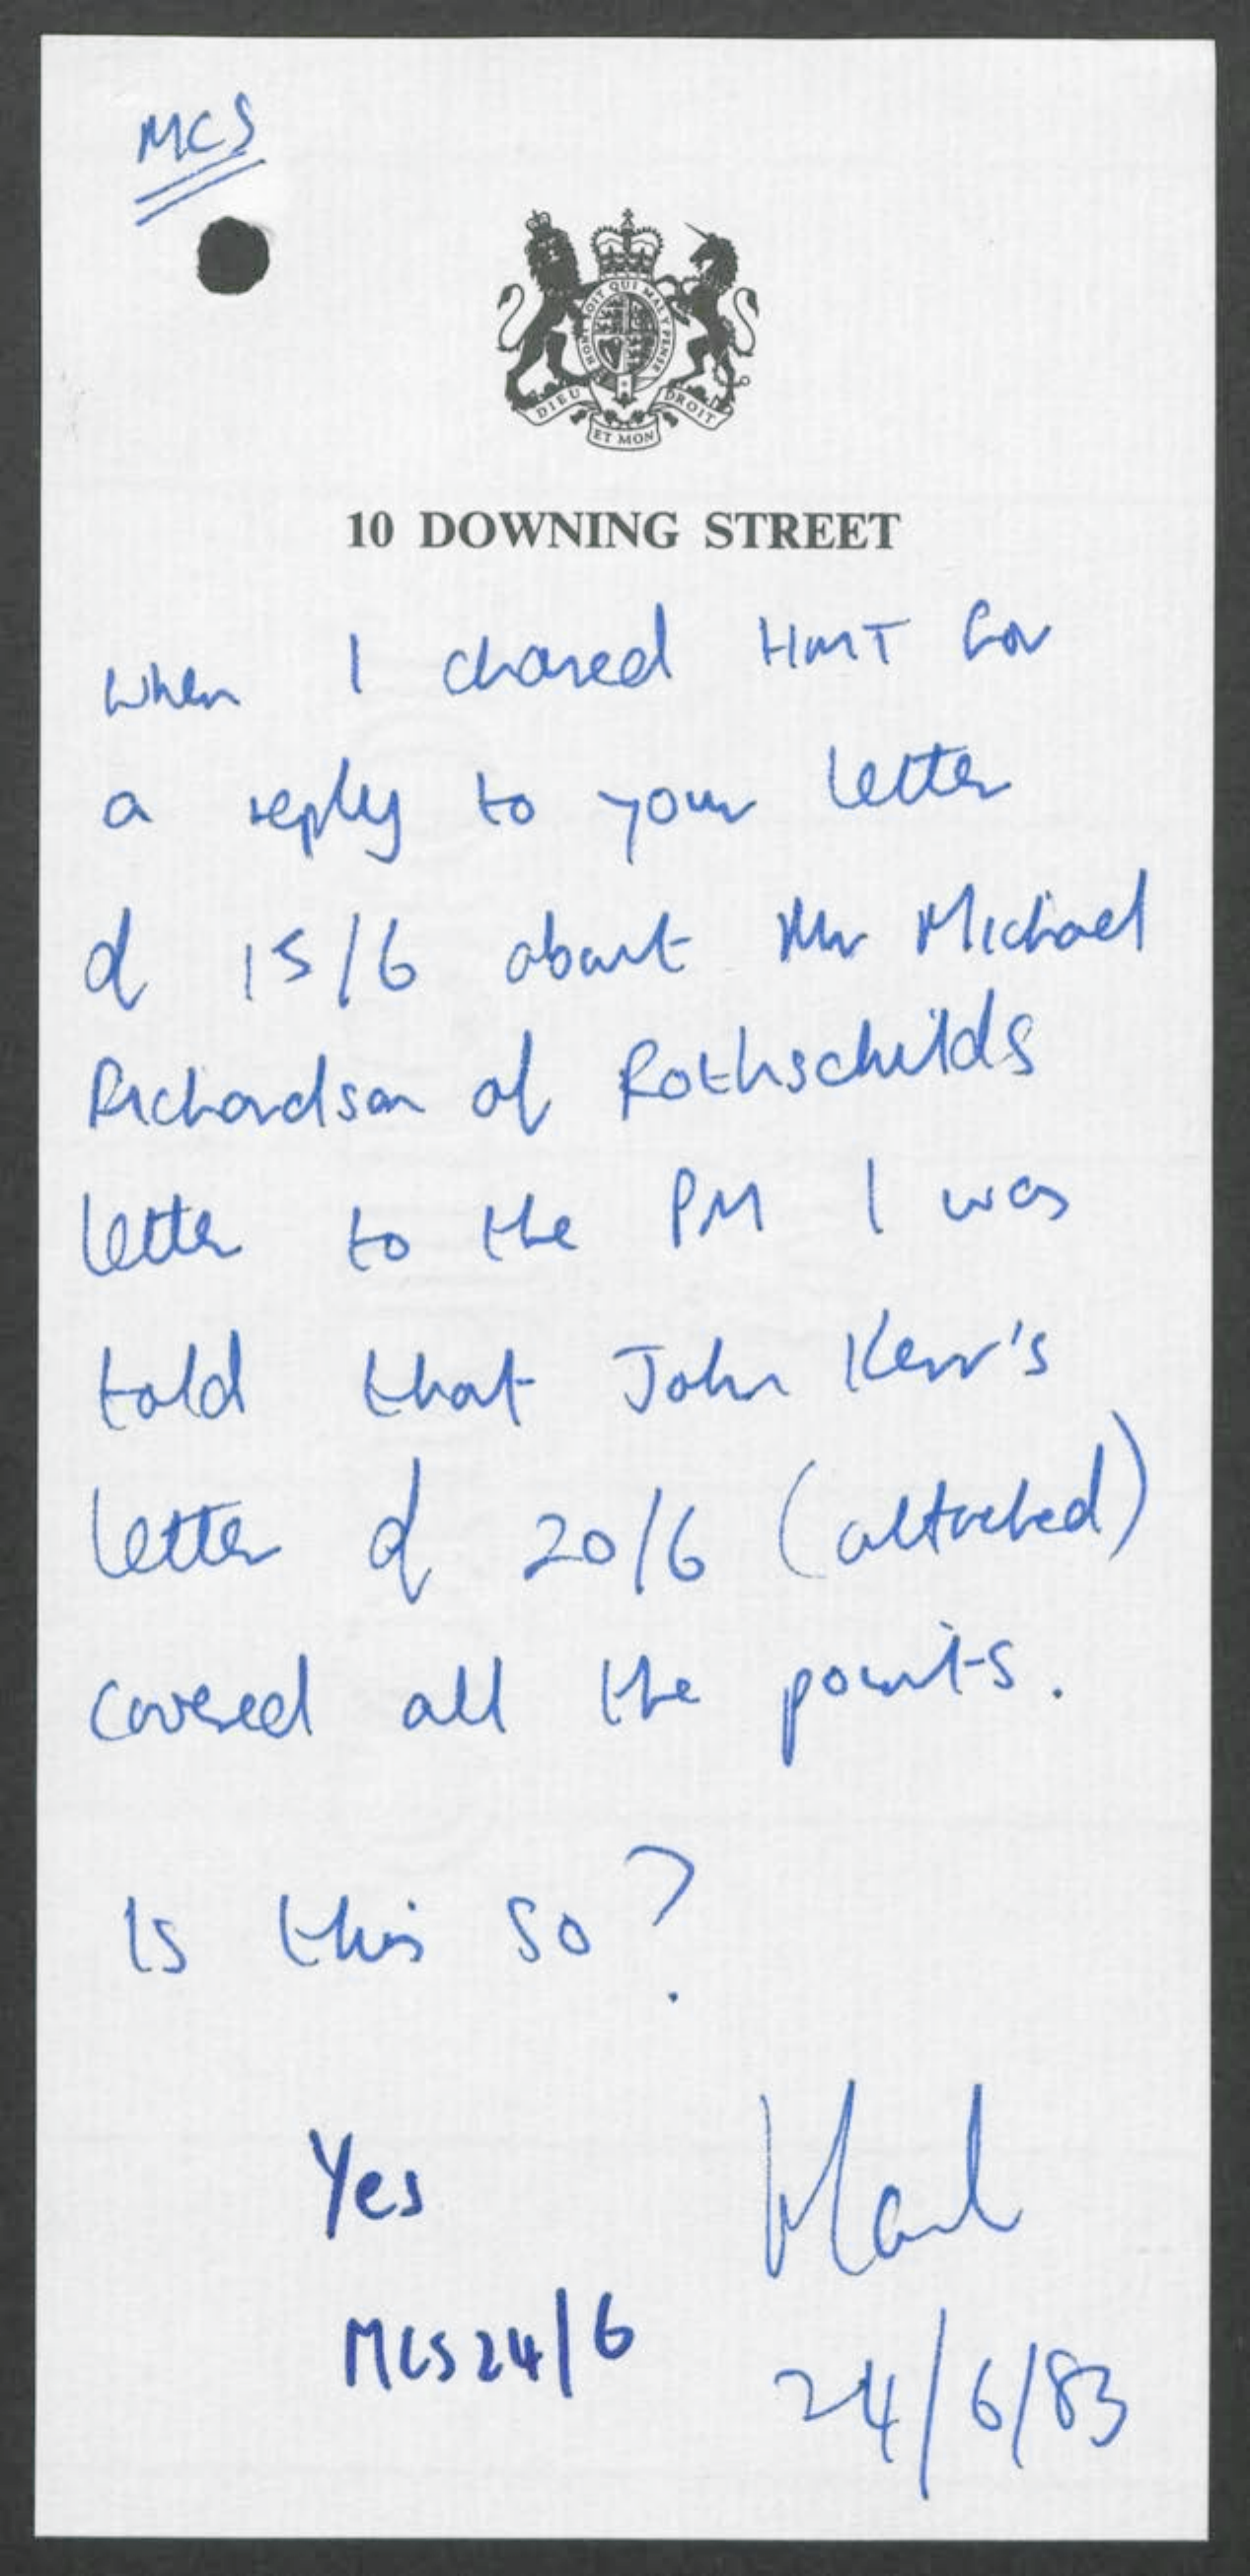 MCS
HONI SOIT QUI MAL Y PENSE
DIEU ET MON DROIT
10 DOWNING STREET
When I chased HMT for
a reply to your letter
of 15/6 about Mr Michael
Richardson of Rothschilds
letter to the PM I was
told that John Kerr's
letter of 20/6 (attached)
covered all the points.
Is this so?
Yes
Mark
MCS 24/6
24/6/83